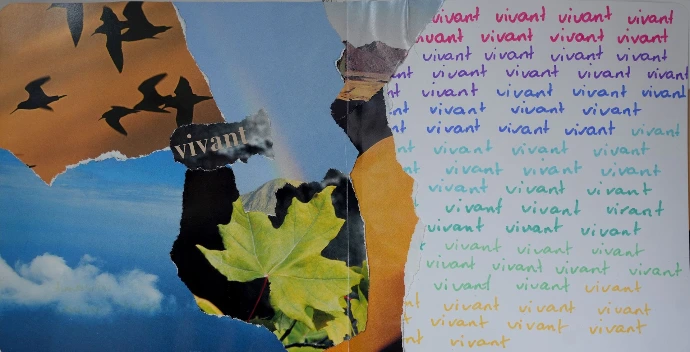 vivant
vivant vivant vivant vivant
vivant vivant vivant vivant
vivant vivant vivant vivant
vivant vivant vivant vivant
vivant vivant vivant vivant
vivant vivant vivant
vivant vivant vivant vivant
vivant vivant vivant
vivant vivant vivant
vivant vivant vivant
vivant vivant vivant
vivant vivant vivant
vivant vivant vivant
vivant vivant vivant vivant
vivant vivant vivant
vivant vivant vivant
vivant vivant vivant
vivant